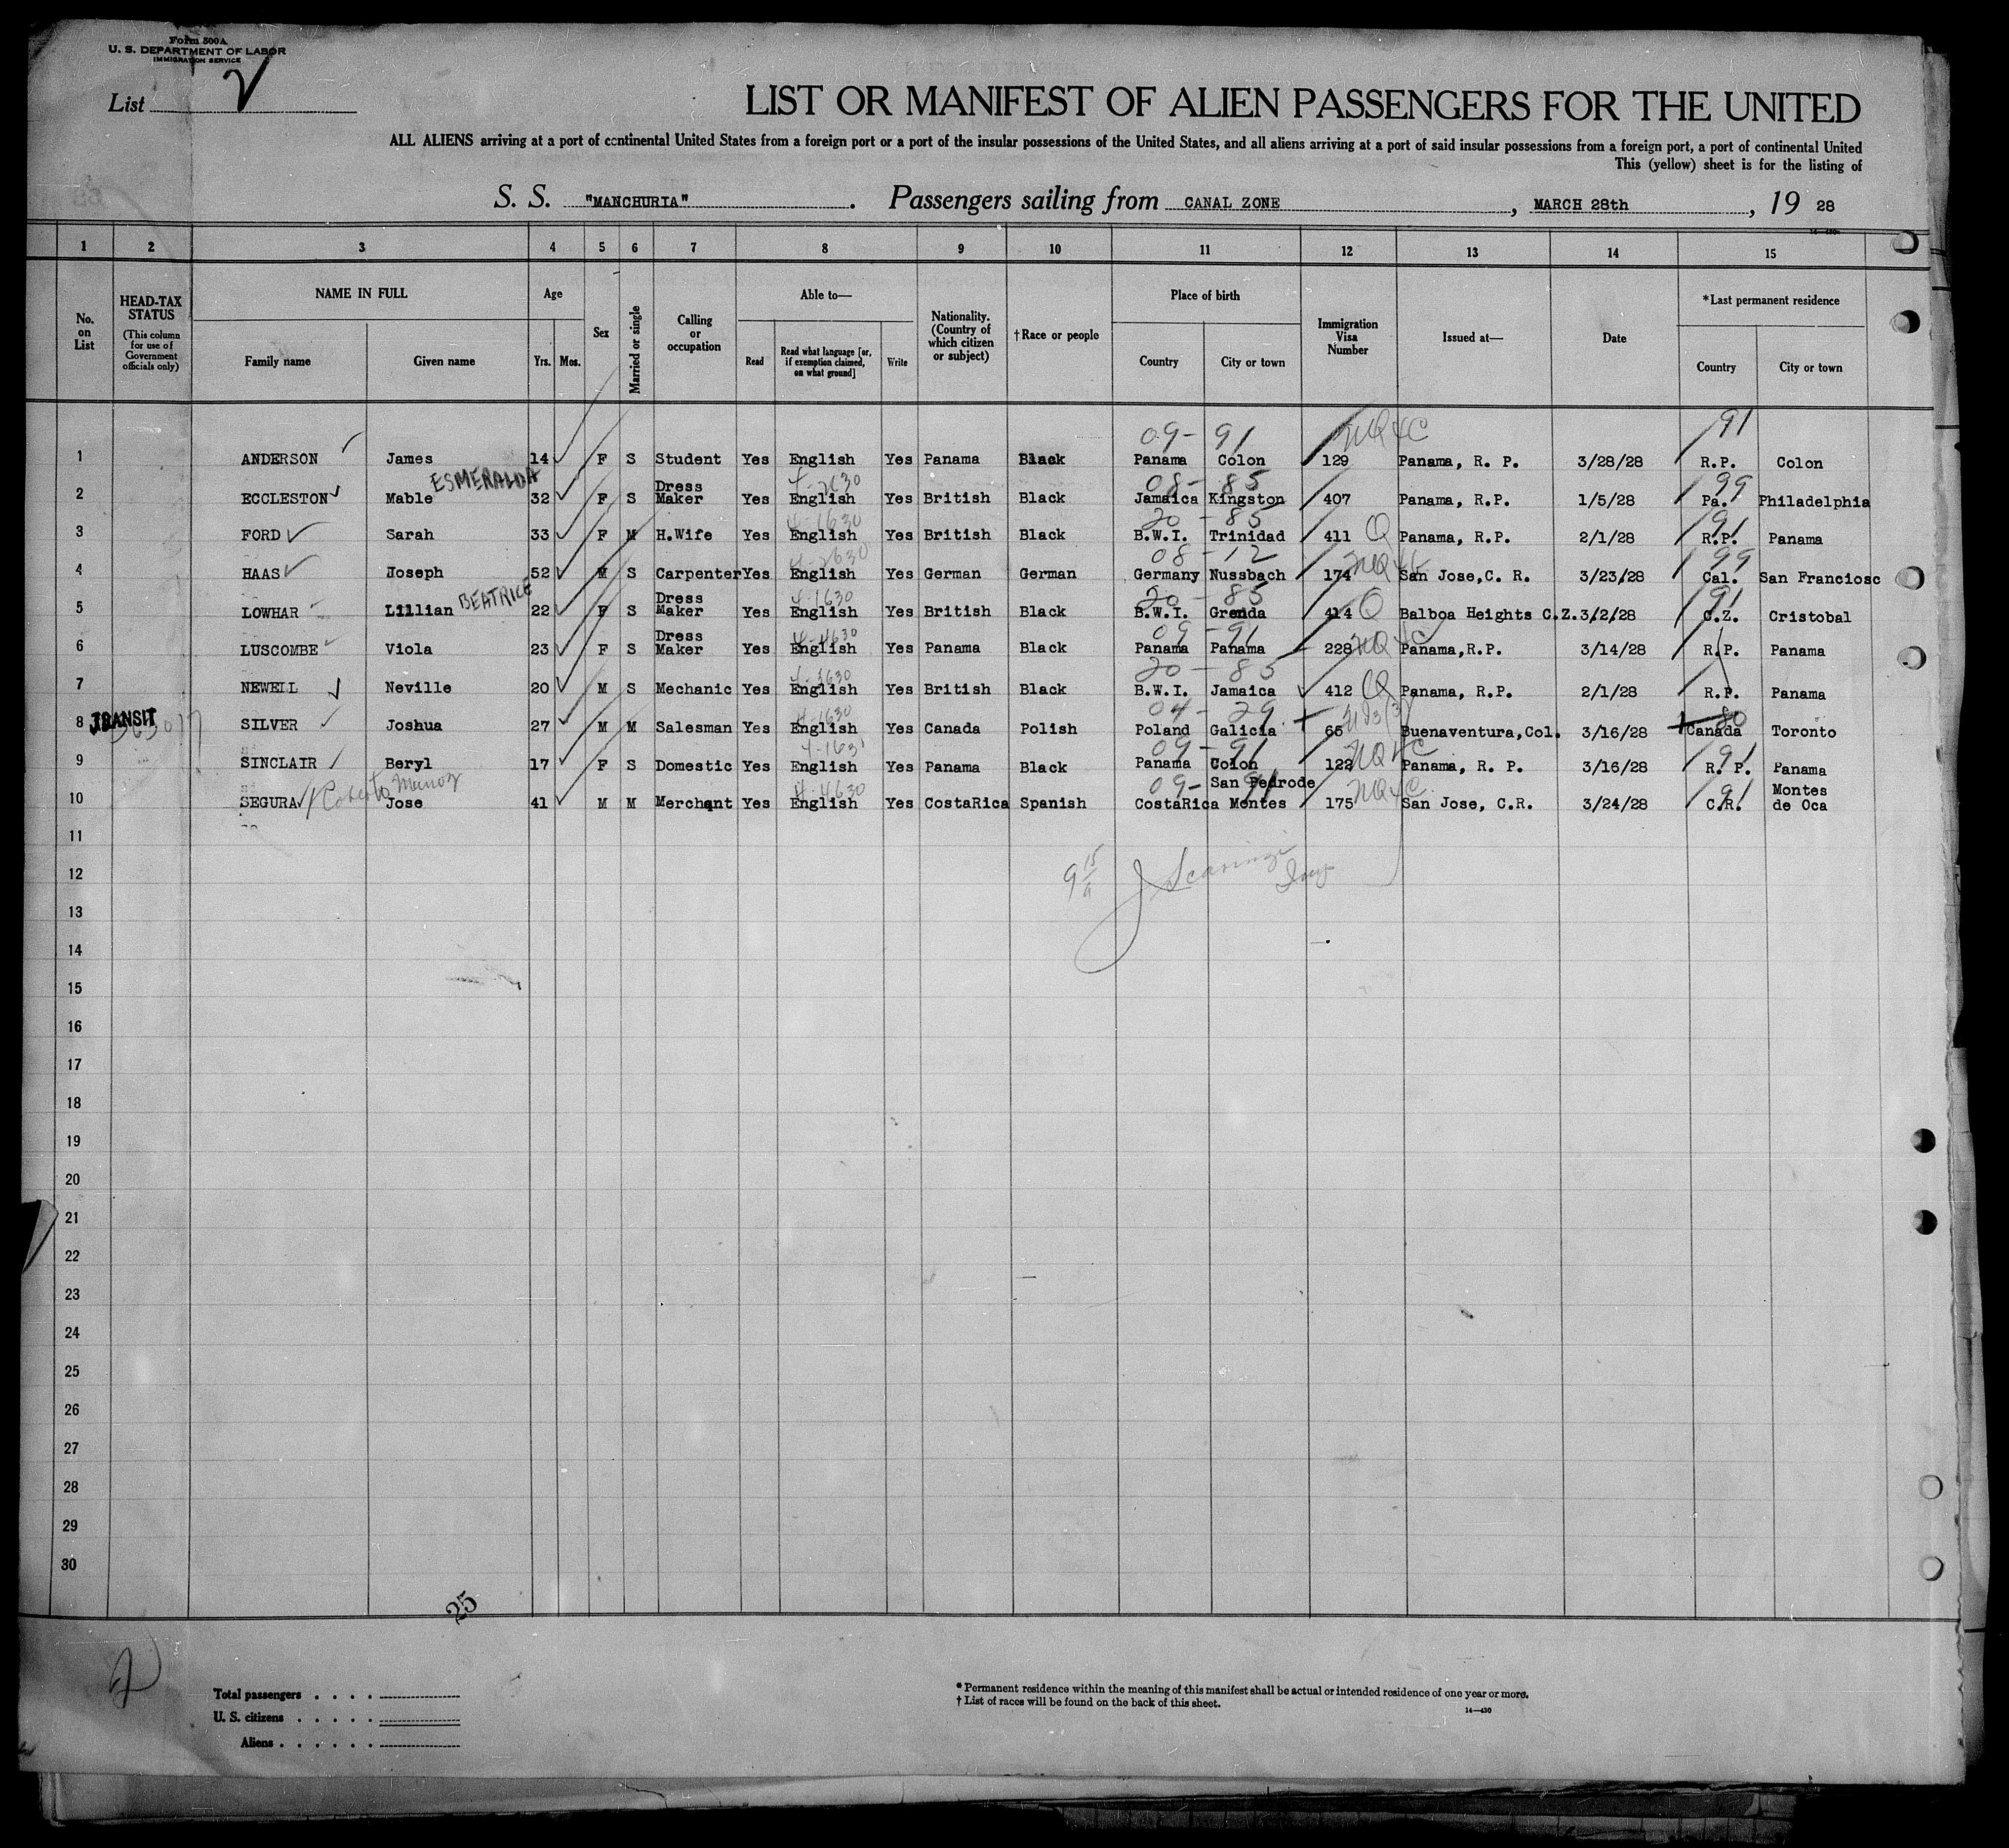 Form 500A
U. S. DEPARTMENT OF LABOR
IMMIGRATION SERVICE
List
LIST OR MANIFEST OF ALIEN PASSENGERS FOR THE UNITED
ALL ALIENS arriving at a port of continental United States from a foreign port or a port of the insular possessions of the United States, and all aliens arriving at a port of said insular possessions from a foreign port, a port of continental United
This (yellow) sheet is for the listing of
S. S. "MANCHURIA". Passengers sailing from CANAL ZONE, MARCH 28th, 19 28
14—430
1 2 3 4 5 6 7 8 9 10 11 12 13 14 15
No. on List
HEAD-TAX STATUS
(This column for use of Government officials only)
NAME IN FULL
Family name Given name
Age
Yrs. Mos.
Sex
Married or single
Calling or occupation
Able to—
Read Read what language [or, if exemption claimed, on what ground] Write
Nationality. (Country of which citizen or subject)
†Race or people
Place of birth
Country City or town
Immigration Visa Number
Issued at—
Date
*Last permanent residence
Country City or town
09- 91 NQ4C 91
1 ANDERSON James 14 F S Student Yes English Yes Panama Black Panama Colon 129 Panama, R. P. 3/28/28 R.P. Colon
ESMERALDA 08- 85 99
2 ECCLESTON Mable 32 F S Dress Maker Yes English Yes British Black Jamaica Kingston 407 Panama, R.P. 1/5/28 Pa. Philadelphia
4-1630 20 - 85 91
3 FORD Sarah 33 F M H.Wife Yes English Yes British Black B.W.I. Trinidad 411 Q Panama, R.P. 2/1/28 R.P. Panama
08 - 12 99
4 HAAS Joseph 52 M S Carpenter Yes English Yes German German Germany Nussbach 174 San Jose,C. R. 3/23/28 Cal. San Franciosc
BEATRICE 4-1630 20 - 85 91
5 LOWHAR Lillian 22 F S Dress Maker Yes English Yes British Black B.W.I. Grenda 414 Q Balboa Heights C.Z. 3/2/28 C.Z. Cristobal
4-4630 09 - 91
6 LUSCOMBE Viola 23 F S Dress Maker Yes English Yes Panama Black Panama Panama 228 NQ4C Panama,R.P. 3/14/28 R.P. Panama
20 - 85
7 NEWELL Neville 20 M S Mechanic Yes English Yes British Black B.W.I. Jamaica 412 Q Panama, R.P. 2/1/28 R.P. Panama
TRANSIT 4-1630 04 - 29 80
8 SILVER Joshua 27 M M Salesman Yes English Yes Canada Polish Poland Galicia 65 Buenaventura,Col. 3/16/28 Canada Toronto
09 - 91 NQ4C 91
9 SINCLAIR Beryl 17 F S Domestic Yes English Yes Panama Black Panama Colon 122 Panama, R. P. 3/16/28 R. P. Panama
Roberto Munoz 4-4630 09- 91 NQ4C 91
10 SEGURA Jose 41 M M Merchant Yes English Yes CostaRica Spanish CostaRica San Pedrode Montes 175 San Jose, C.R. 3/24/28 C.R. Montes de Oca
11
12
13
14
15
16
17
18
19
20
21
22
23
24
25
26
27
28
29
30
25
2
Total passengers
U. S. citizens
Aliens
* Permanent residence within the meaning of this manifest shall be actual or intended residence of one year or more.
† List of races will be found on the back of this sheet.
14—430